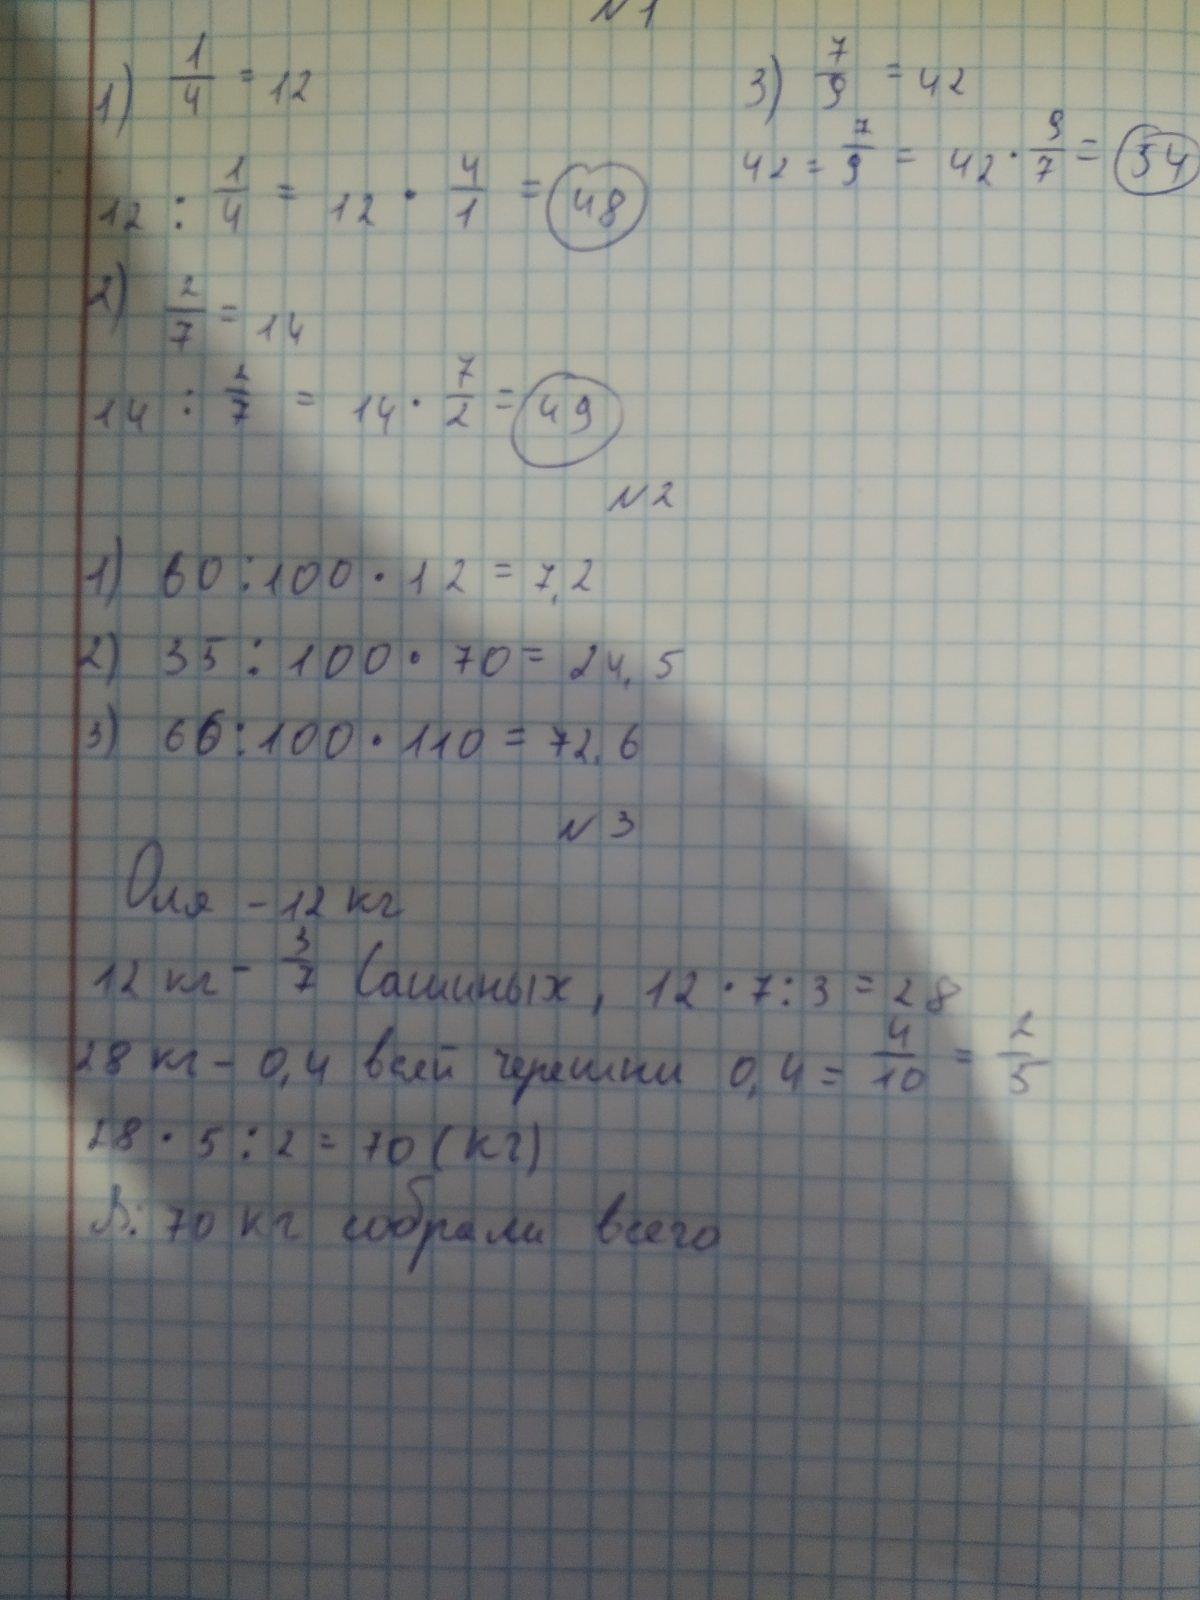 N1
1) 1/4 = 12
12 : 1/4 = 12 · 4/1 = 48
2) 2/7 = 14
14 : 2/7 = 14 · 7/2 = 49
3) 7/9 = 42
42 = 7/9 = 42 · 9/7 = 54
N2
1) 60 : 100 · 12 = 7,2
2) 35 : 100 · 70 = 24,5
3) 66 : 100 · 110 = 72,6
N3
Оля - 12 кг
12 кг - 3/7 Сашиных, 12 · 7 : 3 = 28
28 кг - 0,4 всей черешни 0,4 = 4/10 = 2/5
28 · 5 : 2 = 70 (кг)
О: 70 кг собрали всего